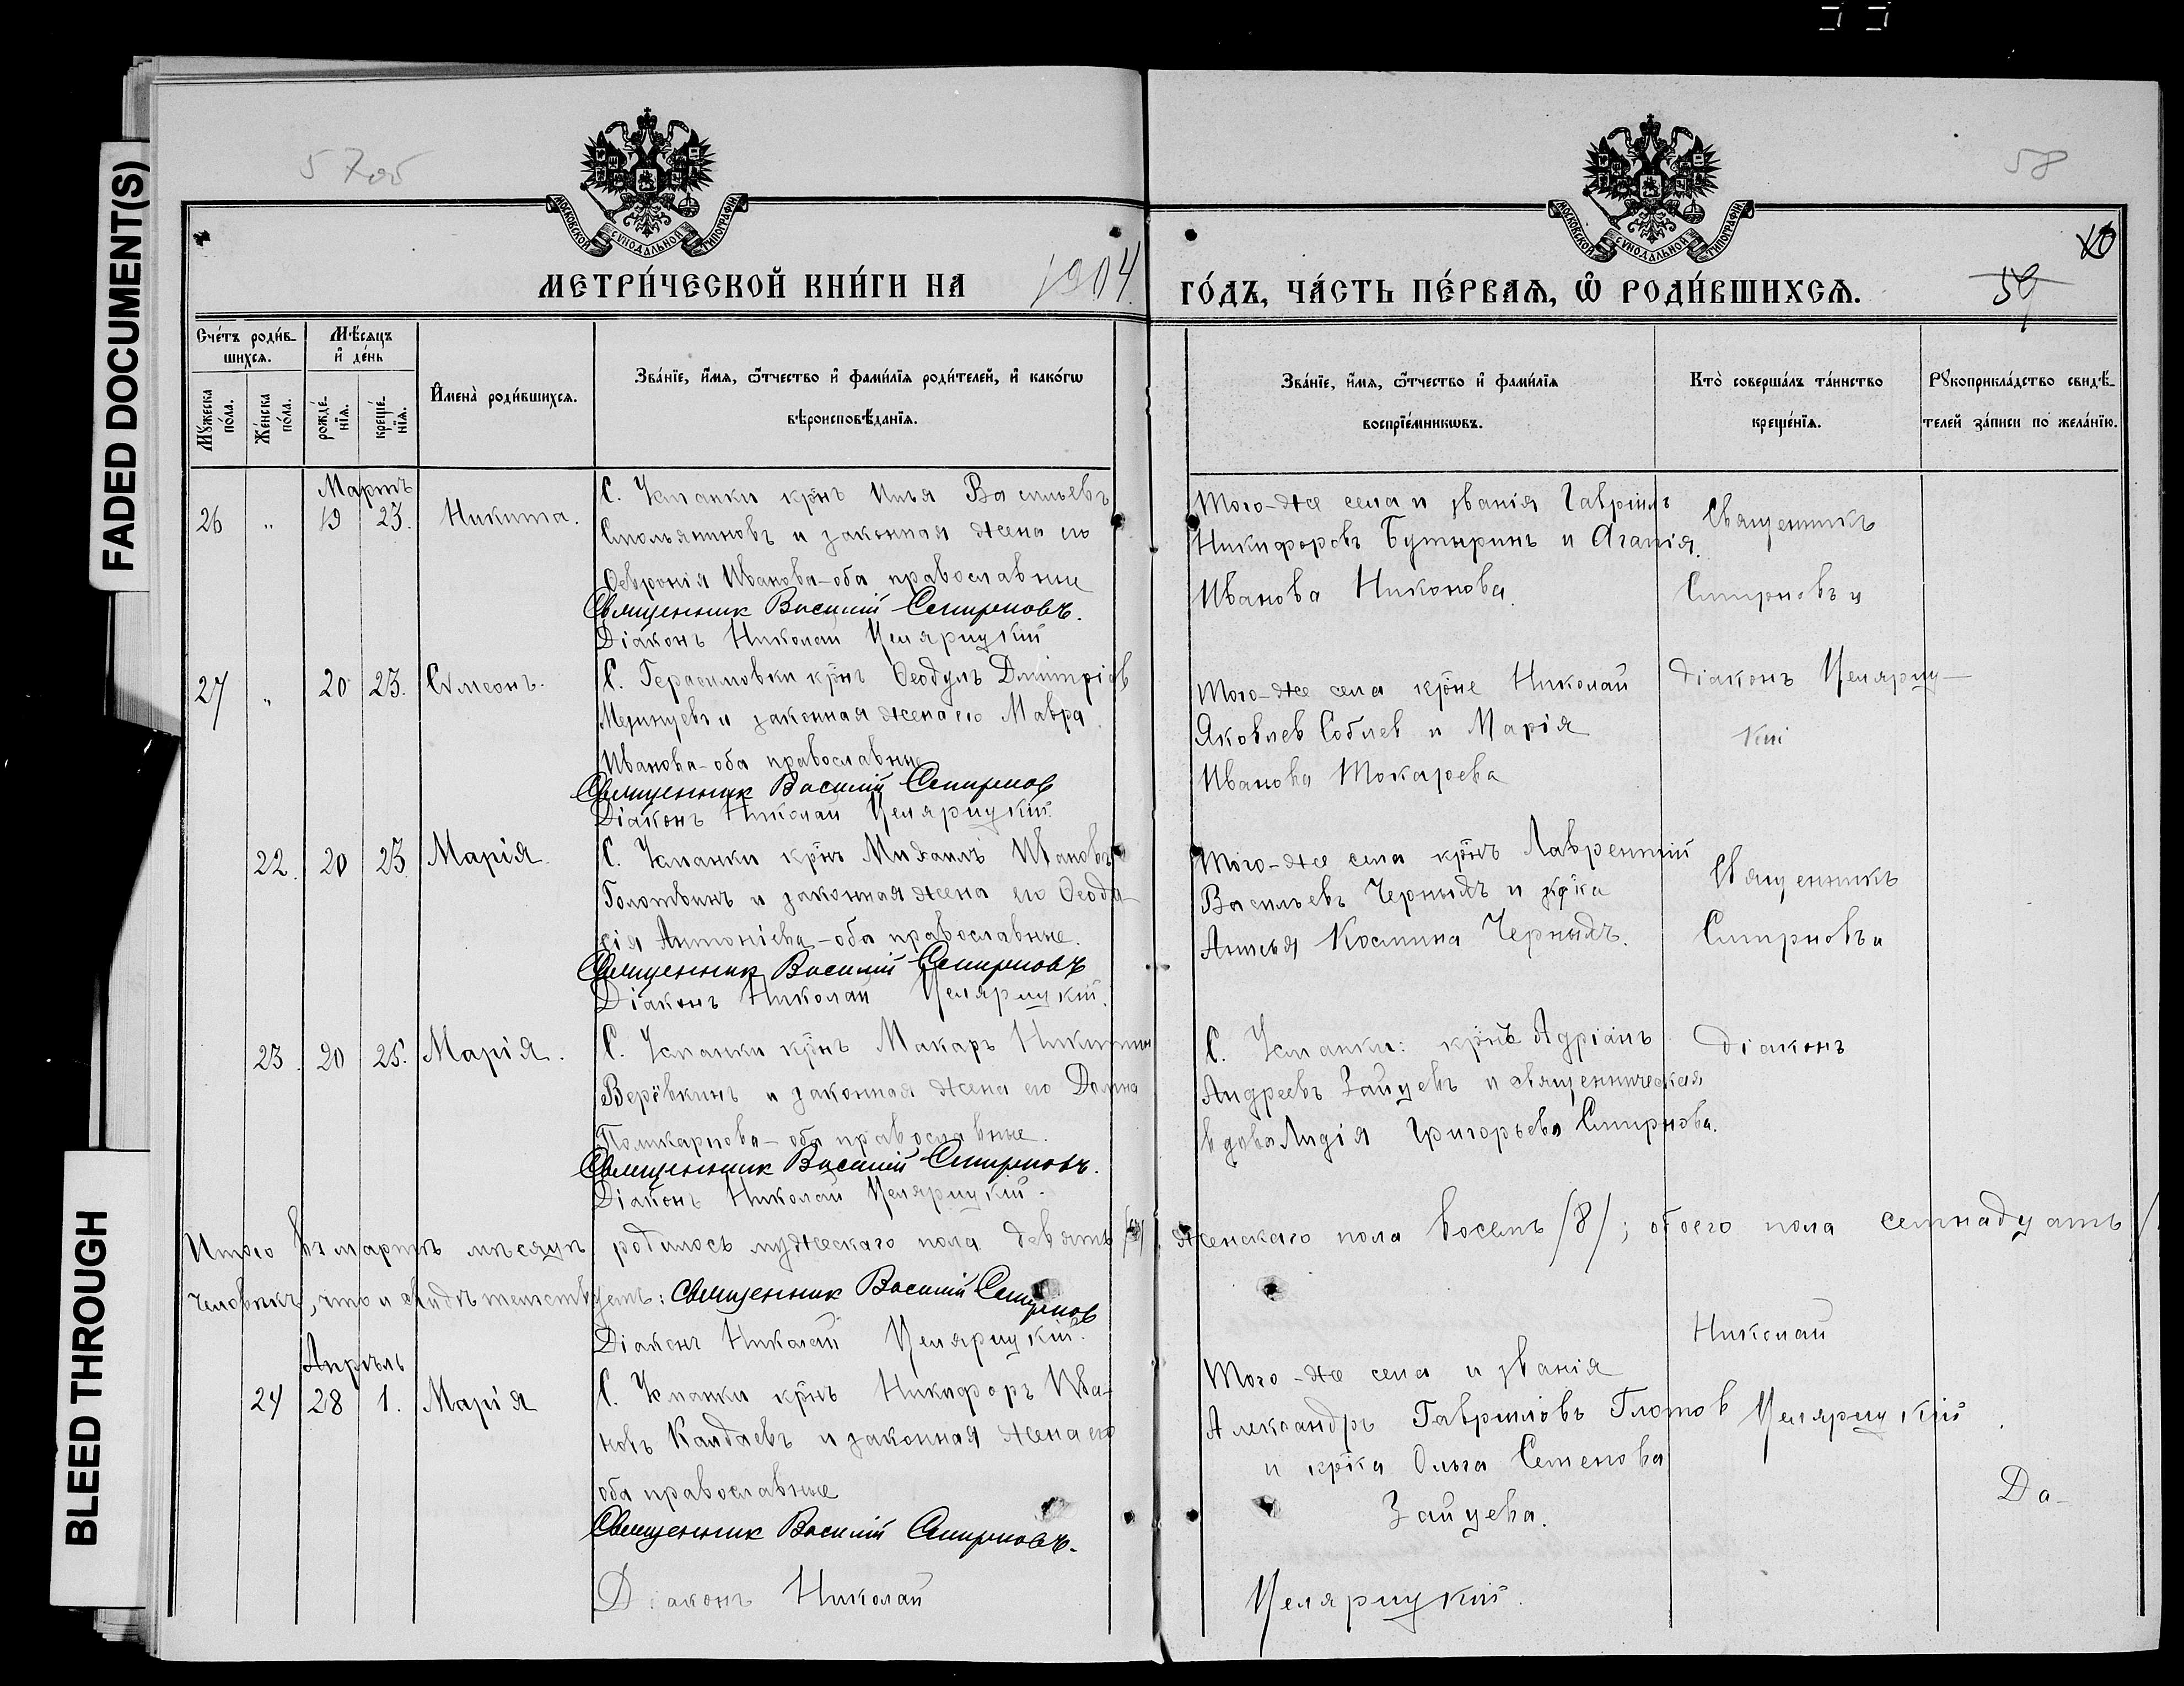 FADED DOCUMENT(S)
BLEED THROUGH
57об
58
МОСКОВСКОЙ СѴНОДАЛЬНОЙ ТИПОГРАФІИ
МОСКОВСКОЙ СѴНОДАЛЬНОЙ ТИПОГРАФІИ
59
МЕТРИ́ЧЕСКОЙ КНИ́ГИ НА 1904 ГО́ДЪ, ЧА́СТЬ ПЕ́РВАѦ, Ѡ҆ РОДИ́ВШИХСѦ.
Сче́тъ роди́в-
шихсѧ.
Мꙋ́жеска по́ла.
Же́нска по́ла.
Мѣ́сѧцъ
и҆ де́нь
рожде́-
нїѧ.
креще́-
нїѧ.
И҆мена̀ роди́вшихсѧ.
Зва́нїе, и҆́мѧ, ѻ҆́тчество и҆ фами́лїѧ роди́телей, и҆ како́гѡ
вѣроисповѣ́данїѧ.
Зва́нїе, и҆́мѧ, ѻ҆́тчество и҆ фами́лїѧ
воспрїе́мникѡвъ.
Кто̀ соверша́лъ та́инство
креще́нїѧ.
Рꙋкоприкла́дство свидѣ́-
телей за́писи по жела́нїю.
Мартъ
26 " 19 23. Никита.
С. Усманки крнъ Илья Васильевъ
Смольяниновъ и законная жена его
Ѳевронія Иванова - оба православные
Священник Василий Смирновъ.
Діаконъ Николай Целярицкій
Того-же села и званія Гавріилъ
Никифоровъ Бутыринъ и Агапія
Иванова Никонова.
Священникъ
Смирновъ и
27 " 20 23. Сѵмеонъ.
С. Герасимовки крнъ Ѳеодулъ Дмитріев
Мезинцевъ и законная жена его Мавра
Иванова - оба православные
Священник Василий Смирнов
Діаконъ Николай Целярицкій.
Того-же села крне Николай
Яковлев Соблев и Марія
Иванова Токарева
діаконъ Целяриц-
кій
22. 20 23 Марія.
С. Усманки крнъ Михаилъ Ивановъ
Голотвинъ и законная жена его Ѳеодо-
сія Антоніева - оба православные.
Священник Василий Смирновъ
Діаконъ Николай Целярицкій.
Того-же села крнъ Лаврентий
Васильевъ Черныхъ и крка
Анисья Космина Черныхъ.
Священникъ
Смирновъ и
23. 20 25. Марія.
С. Усманки крнъ Макаръ Никитин
Верёвкинъ и законная жена его Домна
Поликарпова - оба православные.
Священник Василий Смирновъ.
Діаконъ Николай Целярицкій.
С. Усманки: крнъ Адріанъ
Андреевъ Зайцевъ и священническая
вдова Лидія Григорьева Смирнова.
діаконъ
Итого въ мартѣ мѣсяцѣ родилось мужескаго пола девять /9/, женскаго пола восемь /8/; обоего пола семнадцать
человѣкъ, что и свидѣтельствуемъ: священник Василий Смирнов
Діаконъ Николай Целярицкій.
Апрѣль
24 28 1. Марія
С. Усманки крнъ Никифоръ Ива-
новъ Калдаевъ и законная жена его
оба православные
Священник Василий Смирновъ.
Діаконъ Николай Целярицкій.
Того-же села и званія
Александръ Гавриловъ Глотов
и крка Ольга Семенова
Зайцева.
Николай
Целярицкій
Да-